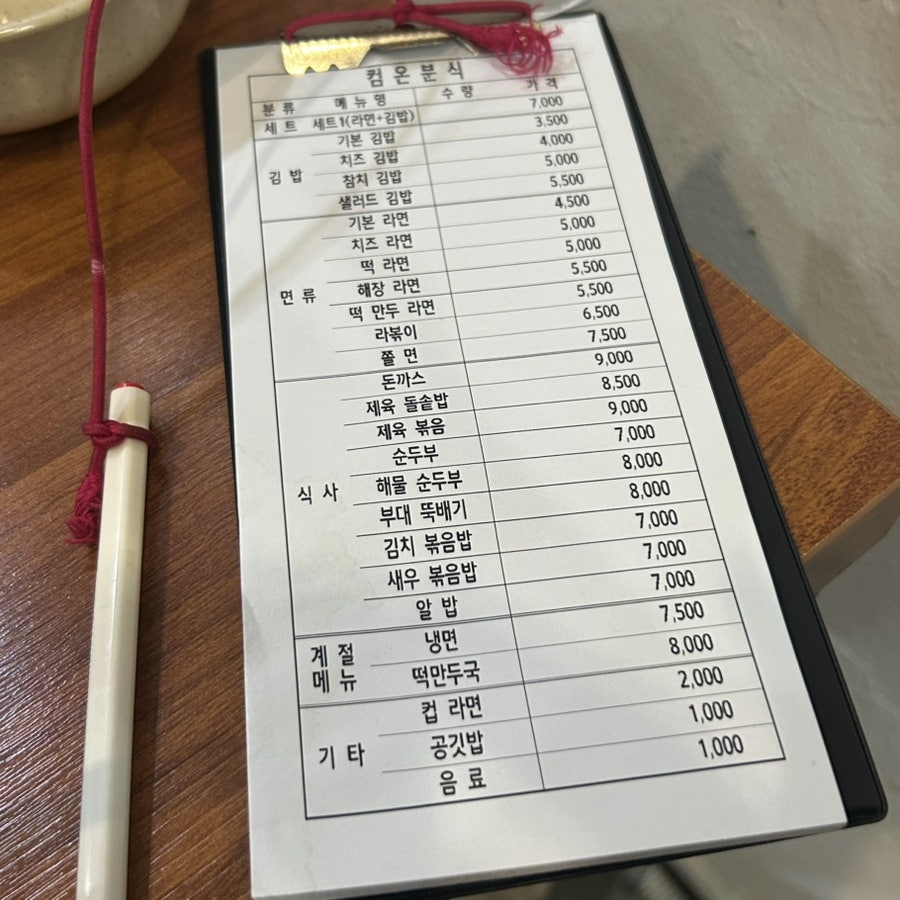 컴온분식
분류 메뉴명 수량 가격
세트 세트1(라면+김밥) 7,000
기본 김밥 3,500
치즈 김밥 4,000
김밥 참치 김밥 5,000
샐러드 김밥 5,500
기본 라면 4,500
치즈 라면 5,000
떡 라면 5,000
면류 해장 라면 5,500
떡 만두 라면 5,500
라볶이 6,500
쫄면 7,500
돈까스 9,000
제육 돌솥밥 8,500
제육 볶음 9,000
순두부 7,000
식사 해물 순두부 8,000
부대 뚝배기 8,000
김치 볶음밥 7,000
새우 볶음밥 7,000
알밥 7,000
계절 냉면 7,500
메뉴 떡만두국 8,000
컵 라면 2,000
기타 공깃밥 1,000
음료 1,000